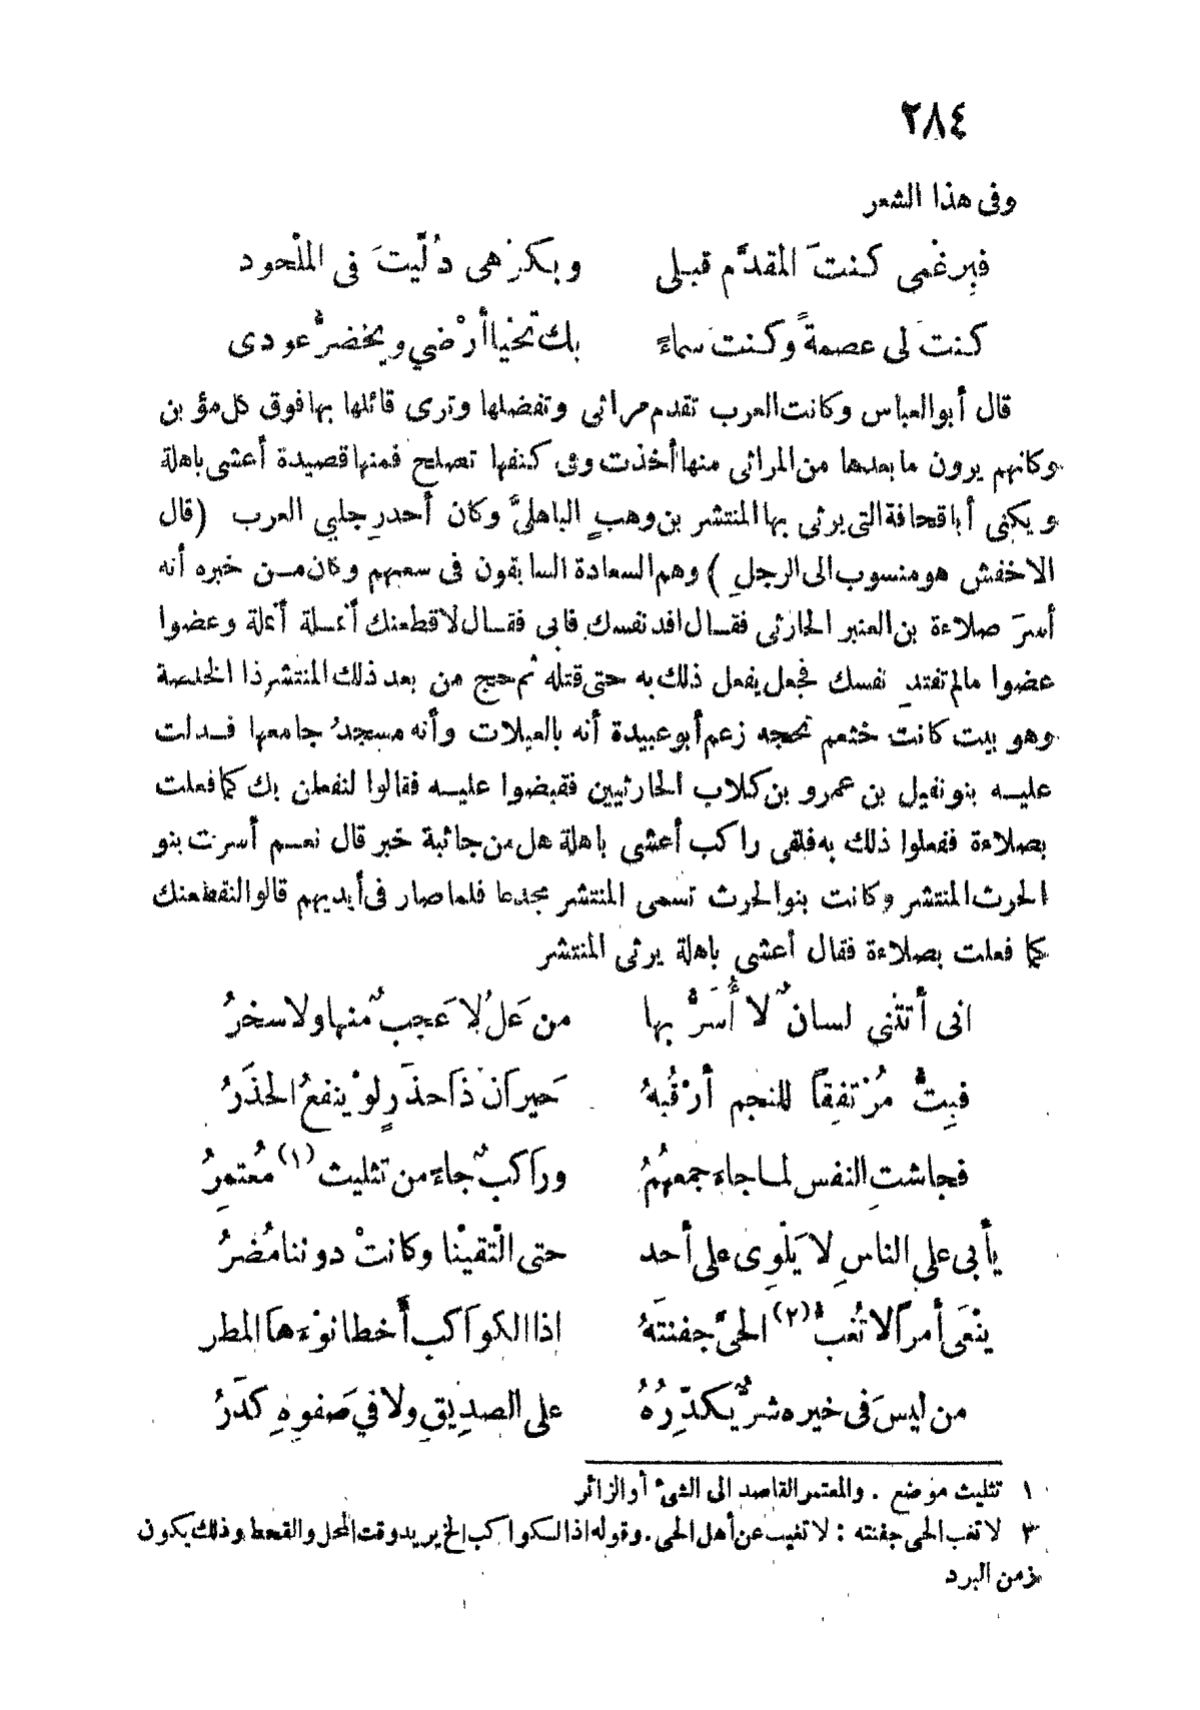 ٢٨٤
وفى هذا الشعر
فبِرغْمى كنتَ المقدَّم قبلى وبكرْهى دُلِّيتَ فى الملْحود
كنتَ لى عصمةً وكنتَ سماءً بك تَحْيا أرْضي ويخضرُّ عودى
قال أبو العباس وكانت العرب تقدم مراثى وتفضلها وترى قائلها بها فوق كل مؤبن
وكانهم يرون ما بعدها من المراثى منها أخذت وفى كنفها تصلح فمنها قصيدة أعشى باهلة
ويكنى أبا قحافة التى يرثى بها المنتشر بن وهبٍ الباهليَّ وكان أحد رِجلي العرب (قال
الاخفش هو منسوب الى الرجلِ) وهم السعادة السابقون فى سعيهم وكان من خبره أنه
أسرَ صلاءة بن العنبر الحارثى فقال افد نفسك فابى فقال لاقطعنك أنملة أنملة وعضوا
عضوا مالم تفتدِ نفسك فجعل يفعل ذلك به حتى قتله ثم حج من بعد ذلك المنتشر ذا الخلصة
وهو بيت كانت خثعم تحجه زعم أبو عبيدة أنه بالعبلات وأنه مسجدُ جامعها فدلت
عليه بنو نفيل بن عمرو بن كلاب الحارثيين فقبضوا عليه فقالوا لنفعلن بك كما فعلت
بصلاءة ففعلوا ذلك به فلقى راكب أعشى باهلة هل من جائبة خبر قال نعم أسرت بنو
الحرث المنتشر وكانت بنو الحرث تسمى المنتشر مجدعا فلما صار فى أيديهم قالوا لنقطعنك
كما فعلت بصلاءة فقال أعشى باهلة يرثى المنتشر
انى أتتْنى لسانٌ لا أُسَرُّ بها من عَلُ لا عَجبٌ منها ولا سخرُ
فبِتُّ مُرْتفِقًا للنجم أرْقُبهُ حَيرانَ ذا حذَرٍ لوْ ينفعُ الحذَرُ
فجاشتِ النفس لما جاءَ جمعهُمُ وراكبٌ جاءَ من تثليث (١) مُعْتمِرُ
يأبى على الناسِ لا يَلْوِى على أحد حتى الْتقيْنا وكانتْ دوننا مُضرُ
ينْعَى أمرأً لا تُغبُّ (٢) الحىَّ جفنتَهُ اذا الكواكب أخطا نوْءَها المطر
من ليسَ فى خيره شرٌّ يكدِّرُهُ على الصدِيقِ ولا في صَفوِهِ كدَرُ
١ تثليث موضع . والمعتمر القاصد الى الشئ أو الزائر
٣ لا تغب الحى جفنته : لا تغيب عن أهل الحى . وقوله اذا الكواكب الخ يريد وقت المحل والقحط وذلك يكون
زمن البرد